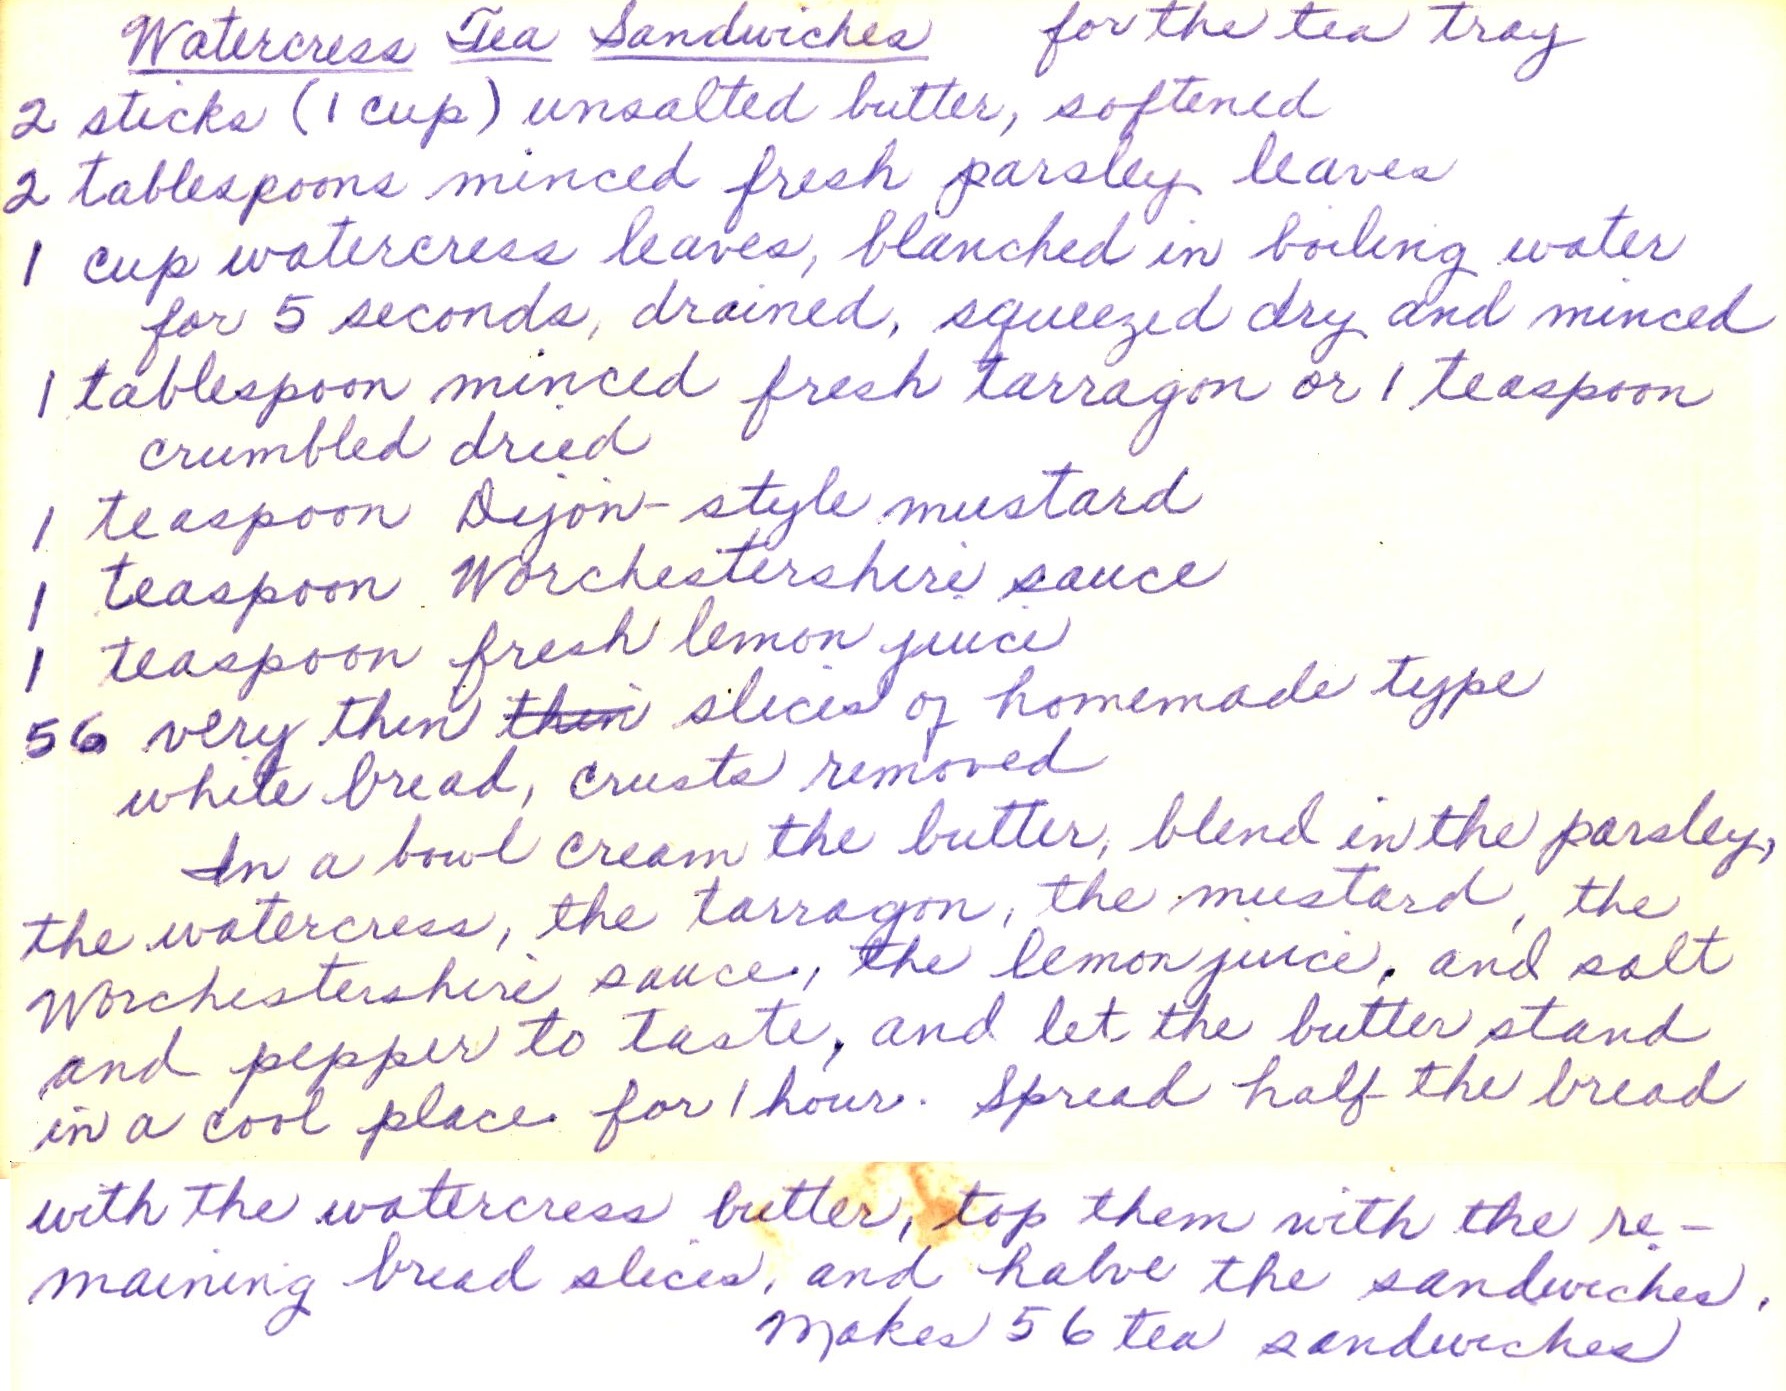 Watercress Tea Sandwiches for the tea tray
2 sticks (1 cup) unsalted butter, softened
2 tablespoons minced fresh parsley leaves
1 cup watercress leaves, blanched in boiling water
for 5 seconds, drained, squeezed dry and minced
1 tablespoon minced fresh tarragon or 1 teaspoon
crumbled dried
1 teaspoon Dijon-style mustard
1 teaspoon Worchestershire sauce
1 teaspoon fresh lemon juice
56 very thin thin slices of homemade type
white bread, crusts removed
In a bowl cream the butter, blend in the parsley,
the watercress, the tarragon, the mustard, the
Worchestershire sauce, the lemon juice, and salt
and pepper to taste, and let the butter stand
in a cool place for 1 hour. Spread half the bread
with the watercress butter, top them with the re-
maining bread slices, and halve the sandwiches.
Makes 56 tea sandwiches